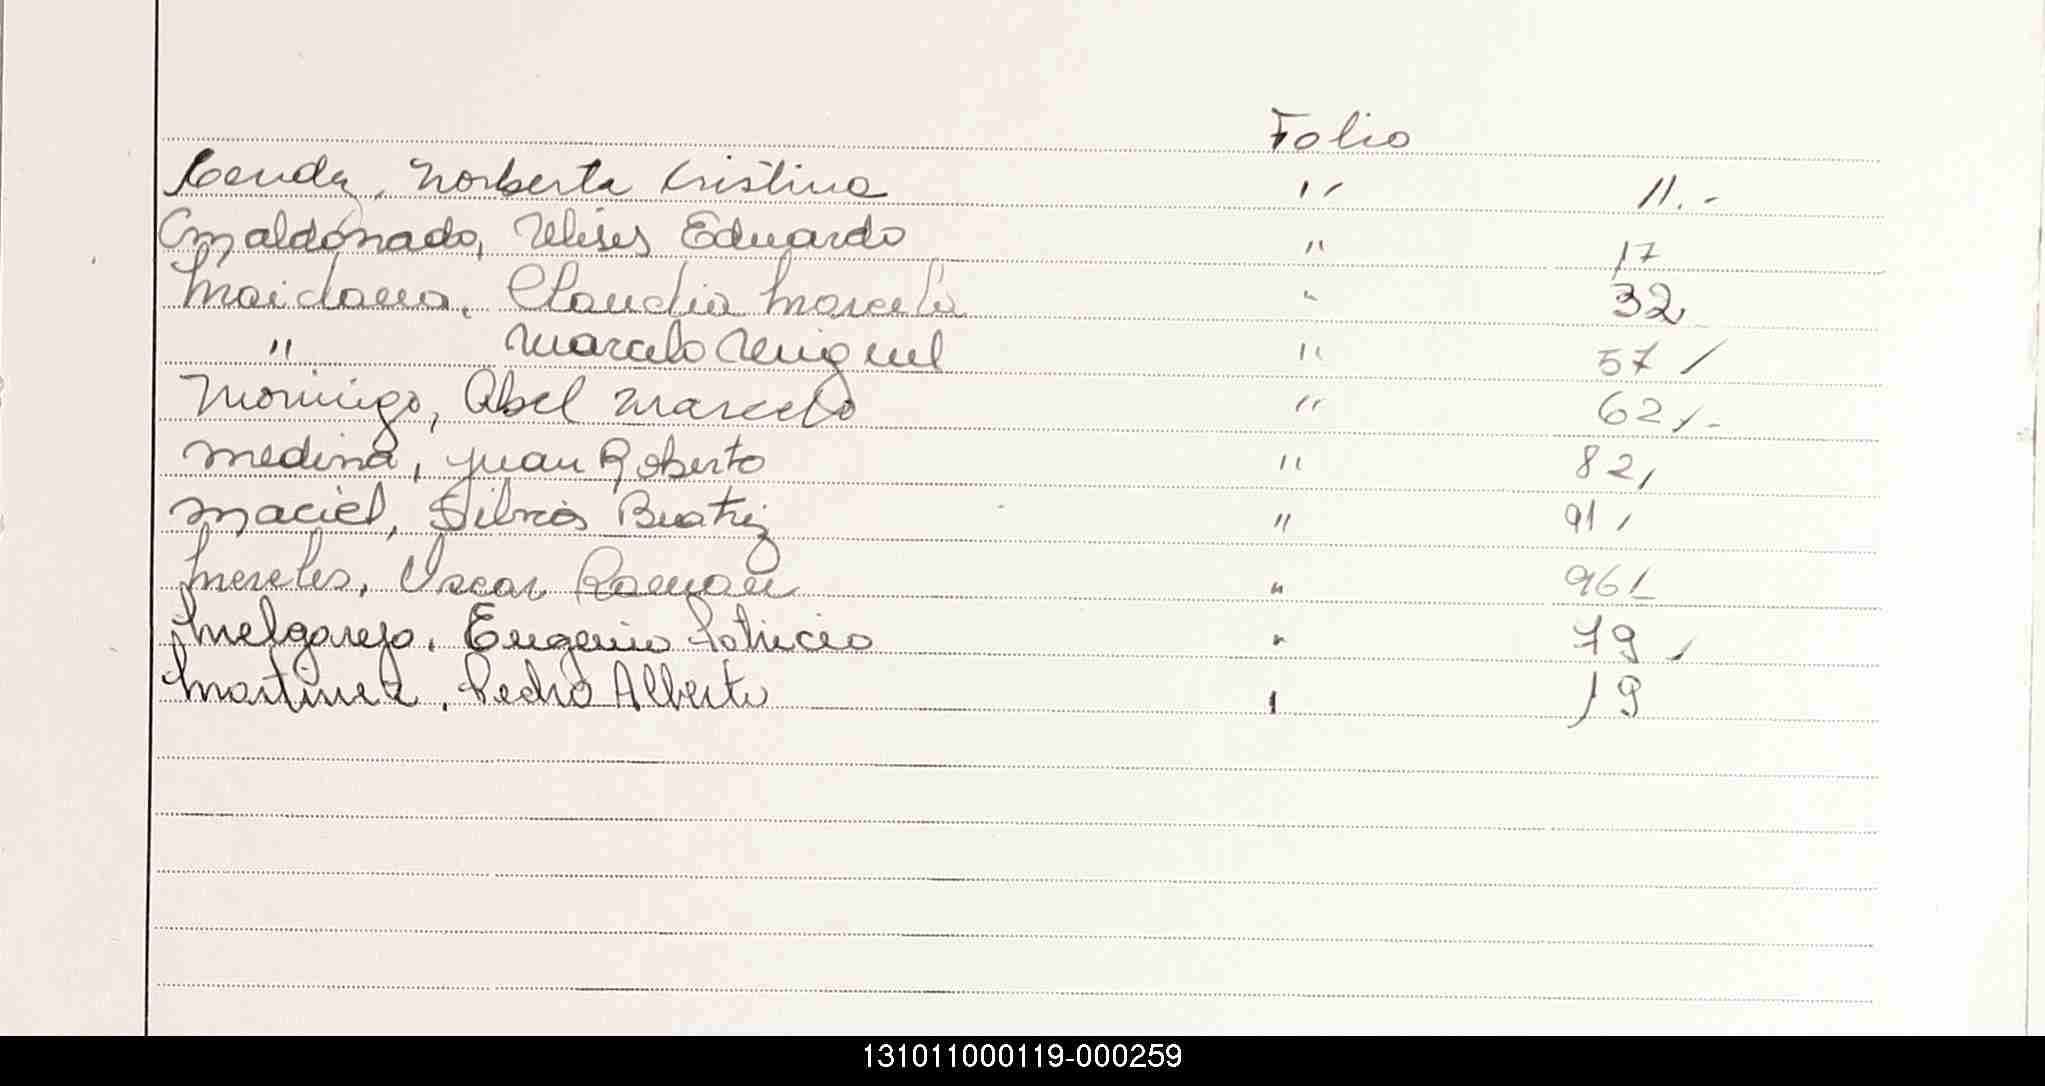 Folio
Norberta Cristina " 11.-
Maldonado, Ulises Eduardo " 17
Maidana, Claudia Marcela " 32
" Marcelo Miguel " 57/
Moringo, Abel Marcelo " 62/-
Medina, Juan Roberto " 82,
Maciel, Silvia Beatriz " 91/
Mereles, Oscar Ramon " 96/
Melgarejo, Eugenio Patricio " 79/
Martinez, Pedro Alberto " 19
131011000119-000259